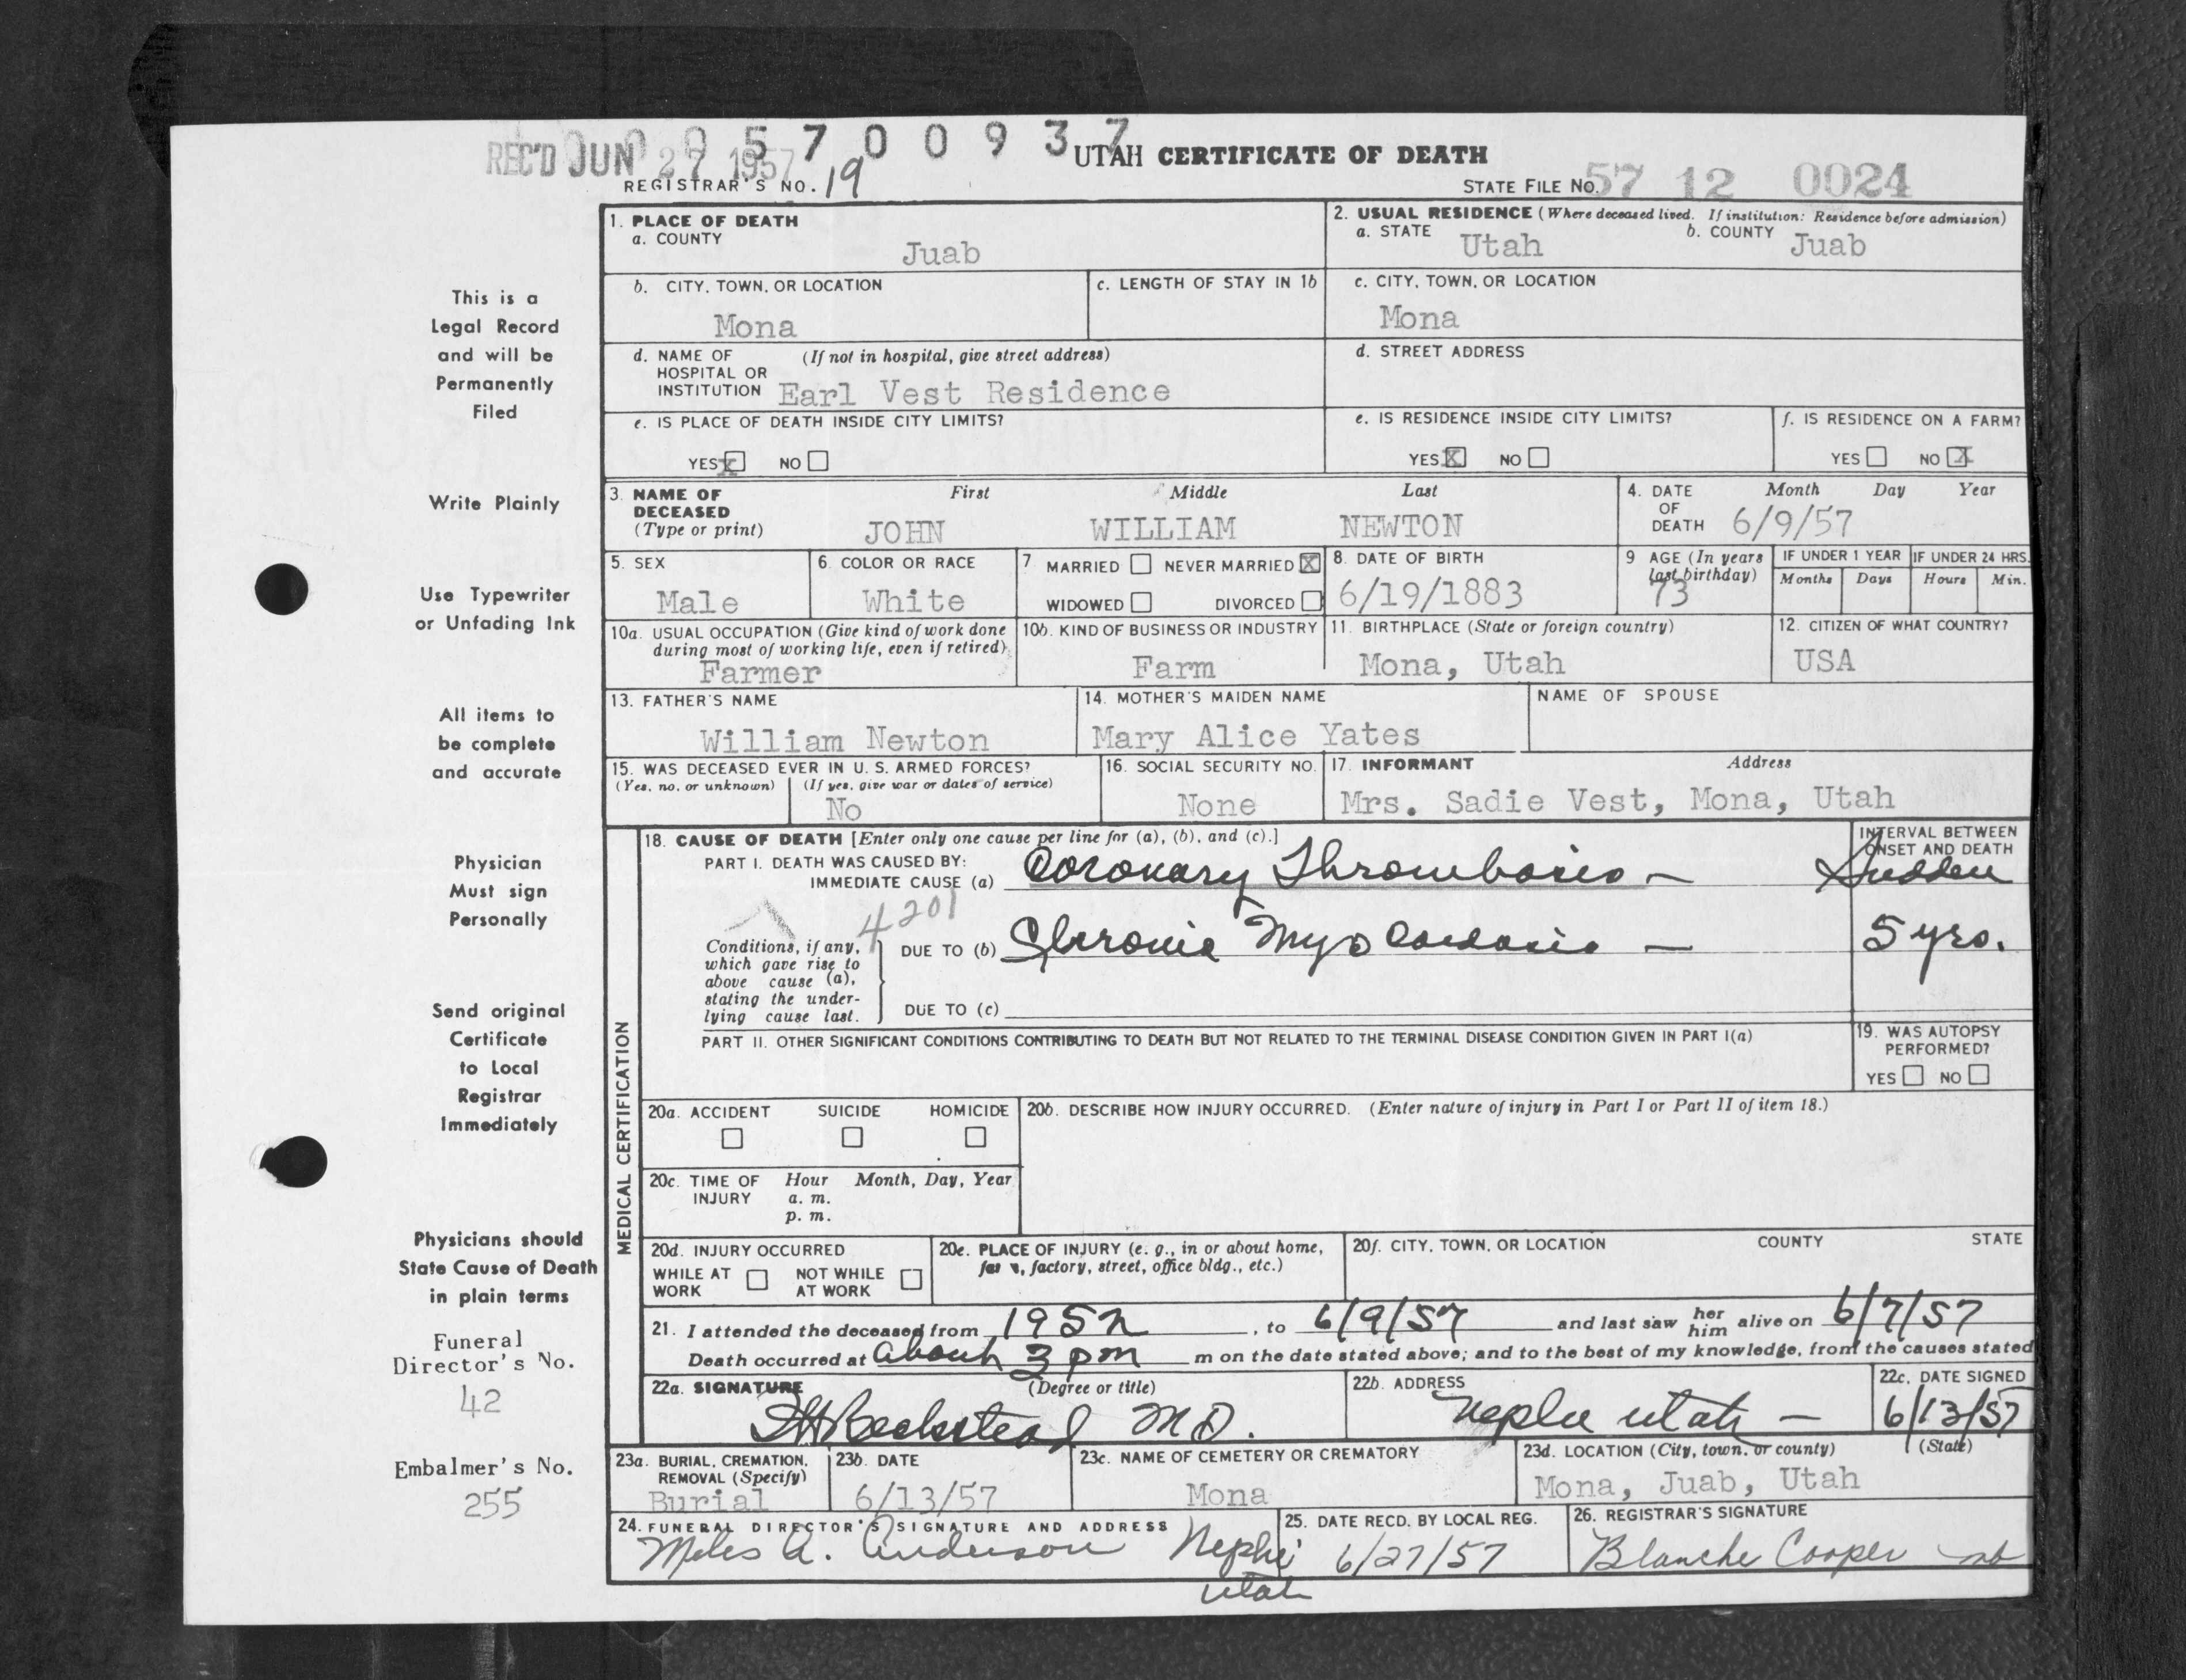 REC'D JUN 27 1957
0 9 5 7 0 0 9 3 7
UTAH CERTIFICATE OF DEATH
REGISTRAR'S NO. 19
STATE FILE NO. 57 12 0024
1. PLACE OF DEATH
a. COUNTY
Juab
2. USUAL RESIDENCE (Where deceased lived. If institution: Residence before admission)
a. STATE Utah b. COUNTY Juab
b. CITY, TOWN, OR LOCATION
Mona
c. LENGTH OF STAY IN 1b
c. CITY, TOWN, OR LOCATION
Mona
d. NAME OF (If not in hospital, give street address)
HOSPITAL OR
INSTITUTION Earl Vest Residence
d. STREET ADDRESS
e. IS PLACE OF DEATH INSIDE CITY LIMITS?
YES X NO
e. IS RESIDENCE INSIDE CITY LIMITS?
YES X NO
f. IS RESIDENCE ON A FARM?
YES NO X
3. NAME OF DECEASED (Type or print)
First Middle Last
JOHN WILLIAM NEWTON
4. DATE OF DEATH
Month Day Year
6/9/57
5. SEX
Male
6. COLOR OR RACE
White
7 MARRIED NEVER MARRIED X
WIDOWED DIVORCED
8. DATE OF BIRTH
6/19/1883
9 AGE (In years last birthday)
73
IF UNDER 1 YEAR
Months Days
IF UNDER 24 HRS.
Hours Min.
10a. USUAL OCCUPATION (Give kind of work done
during most of working life, even if retired)
Farmer
10b. KIND OF BUSINESS OR INDUSTRY
Farm
11. BIRTHPLACE (State or foreign country)
Mona, Utah
12. CITIZEN OF WHAT COUNTRY?
USA
13. FATHER'S NAME
William Newton
14. MOTHER'S MAIDEN NAME
Mary Alice Yates
NAME OF SPOUSE
15. WAS DECEASED EVER IN U. S. ARMED FORCES?
(Yes, no, or unknown) (If yes, give war or dates of service)
No
16. SOCIAL SECURITY NO.
None
17. INFORMANT Address
Mrs. Sadie Vest, Mona, Utah
MEDICAL CERTIFICATION
18. CAUSE OF DEATH [Enter only one cause per line for (a), (b), and (c).]
PART I. DEATH WAS CAUSED BY:
IMMEDIATE CAUSE (a) Coronary Thrombosis -
INTERVAL BETWEEN
ONSET AND DEATH
Sudden
4201
Conditions, if any,
which gave rise to
above cause (a),
stating the under-
lying cause last.
DUE TO (b) Chronic Myocardosis - 5 yrs.
DUE TO (c)
PART II. OTHER SIGNIFICANT CONDITIONS CONTRIBUTING TO DEATH BUT NOT RELATED TO THE TERMINAL DISEASE CONDITION GIVEN IN PART I(a)
19. WAS AUTOPSY
PERFORMED?
YES NO
20a. ACCIDENT SUICIDE HOMICIDE
20b. DESCRIBE HOW INJURY OCCURRED. (Enter nature of injury in Part I or Part II of item 18.)
20c. TIME OF INJURY
Hour Month, Day, Year
a. m.
p. m.
20d. INJURY OCCURRED
WHILE AT WORK NOT WHILE AT WORK
20e. PLACE OF INJURY (e. g., in or about home,
farm, factory, street, office bldg., etc.)
20f. CITY, TOWN, OR LOCATION COUNTY STATE
21. I attended the deceased from 1952, to 6/9/57 and last saw her him alive on 6/7/57
Death occurred at about 3 pm m on the date stated above; and to the best of my knowledge, from the causes stated
22a. SIGNATURE (Degree or title)
Beckstead M.D.
22b. ADDRESS
Nephi Utah -
22c. DATE SIGNED
6/13/57
23a. BURIAL, CREMATION,
REMOVAL (Specify)
Burial
23b. DATE
6/13/57
23c. NAME OF CEMETERY OR CREMATORY
Mona
23d. LOCATION (City, town, or county) (State)
Mona, Juab, Utah
24. FUNERAL DIRECTOR'S SIGNATURE AND ADDRESS
Miles A. Anderson Nephi
Utah
25. DATE RECD. BY LOCAL REG.
6/27/57
26. REGISTRAR'S SIGNATURE
Blanche Cooper
This is a
Legal Record
and will be
Permanently
Filed
Write Plainly
Use Typewriter
or Unfading Ink
All items to
be complete
and accurate
Physician
Must sign
Personally
Send original
Certificate
to Local
Registrar
Immediately
Physicians should
State Cause of Death
in plain terms
Funeral
Director's No.
42
Embalmer's No.
255